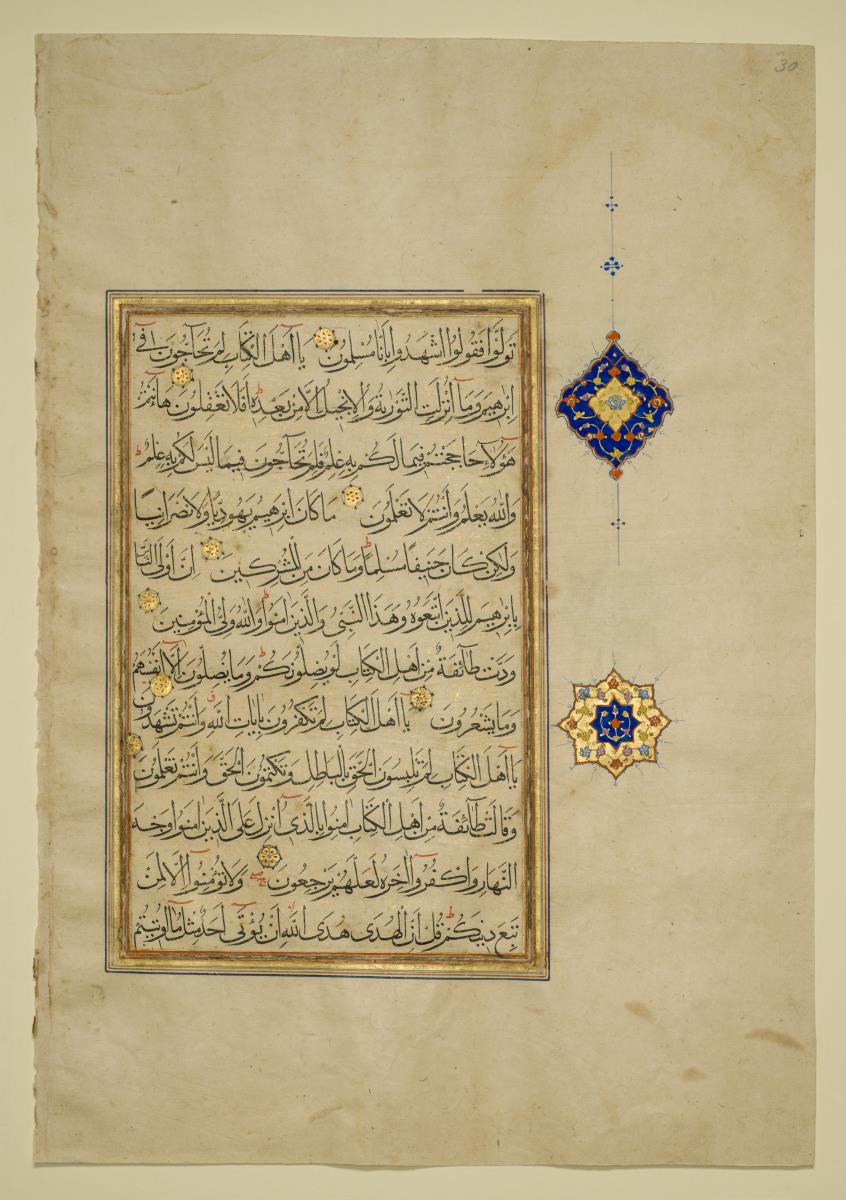 30
تَوَلَّوْا فَقُولُوا اشْهَدُوا بِأَنَّا مُسْلِمُونَ يَا أَهْلَ الْكِتَابِ لِمَ تُحَاجُّونَ فِي
اِبْرٰهِيمَ وَمَا أُنْزِلَتِ التَّوْرٰيةُ وَالْاِنْجِيلُ اِلَّا مِنْ بَعْدِهِ اَفَلَا تَعْقِلُونَ هَا اَنْتُمْ
هٰؤُلَاءِ حَاجَجْتُمْ فِيمَا لَكُمْ بِهِ عِلْمٌ فَلِمَ تُحَاجُّونَ فِيمَا لَيْسَ لَكُمْ بِهِ عِلْمٌ
وَاللّٰهُ يَعْلَمُ وَاَنْتُمْ لَا تَعْلَمُونَ مَا كَانَ اِبْرٰهِيمُ يَهُودِيًّا وَلَا نَصْرَانِيًّا
وَلٰكِنْ كَانَ حَنِيفًا مُسْلِمًا وَمَا كَانَ مِنَ الْمُشْرِكِينَ اِنَّ اَوْلَى النَّاسِ
بِاِبْرٰهِيمَ لَلَّذِينَ اتَّبَعُوهُ وَهٰذَا النَّبِيُّ وَالَّذِينَ اٰمَنُوا وَاللّٰهُ وَلِيُّ الْمُؤْمِنِينَ
وَدَّتْ طَآئِفَةٌ مِنْ اَهْلِ الْكِتَابِ لَوْ يُضِلُّونَكُمْ وَمَا يُضِلُّونَ اِلَّا اَنْفُسَهُمْ
وَمَا يَشْعُرُونَ يَا اَهْلَ الْكِتَابِ لِمَ تَكْفُرُونَ بِاٰيَاتِ اللّٰهِ وَاَنْتُمْ تَشْهَدُونَ
يَا اَهْلَ الْكِتَابِ لِمَ تَلْبِسُونَ الْحَقَّ بِالْبَاطِلِ وَتَكْتُمُونَ الْحَقَّ وَاَنْتُمْ تَعْلَمُونَ
وَقَالَتْ طَآئِفَةٌ مِنْ اَهْلِ الْكِتَابِ اٰمِنُوا بِالَّذِي اُنْزِلَ عَلَى الَّذِينَ اٰمَنُوا وَجْهَ
النَّهَارِ وَاكْفُرُوا اٰخِرَهُ لَعَلَّهُمْ يَرْجِعُونَ وَلَا تُؤْمِنُوا اِلَّا لِمَنْ
تَبِعَ دِينَكُمْ قُلْ اِنَّ الْهُدَى هُدَى اللّٰهِ اَنْ يُؤْتَى اَحَدٌ مِثْلَ مَا اُوتِيتُمْ